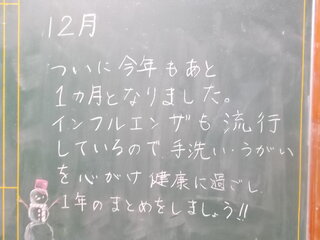 12月
ついに今年もあと
1カ月となりました。
インフルエンザも流行
しているので、手洗い・うがい
を心がけ健康に過ごし、
1年のまとめをしましょう!!